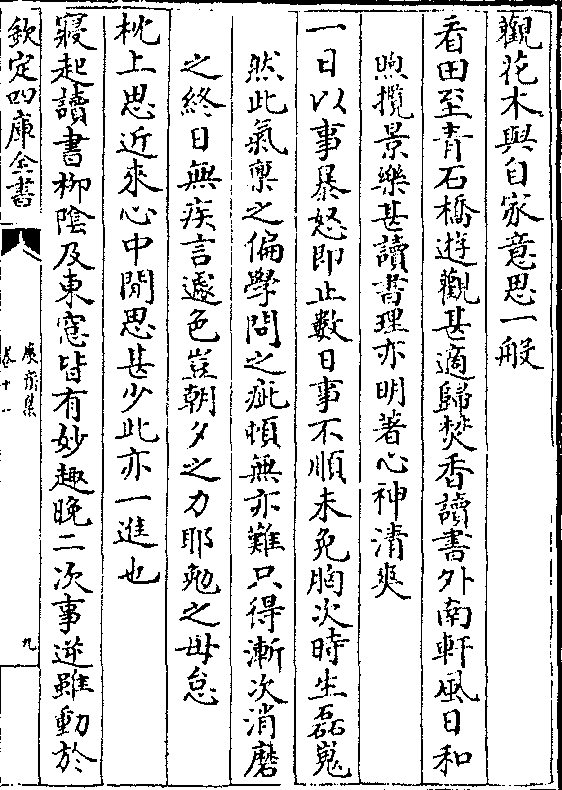 觀花木與自家意思一般
看田至青石橋遊觀甚適歸焚香讀書外南軒風日和
煦攬景樂甚讀書理亦明著心神清爽
一日以事暴怒即止數日事不順未免胸次時生磊嵬
然此氣禀之偏學問之疵頓無亦難只得漸次消磨
之終日無疾言遽色豈朝夕之力耶勉之毋怠
枕上思近來心中閒思甚少此亦一進也
寢起讀書柳陰及東窓皆有妙趣晚二次事逆雖動於
欽定四庫全書
康齋集
卷十一
九